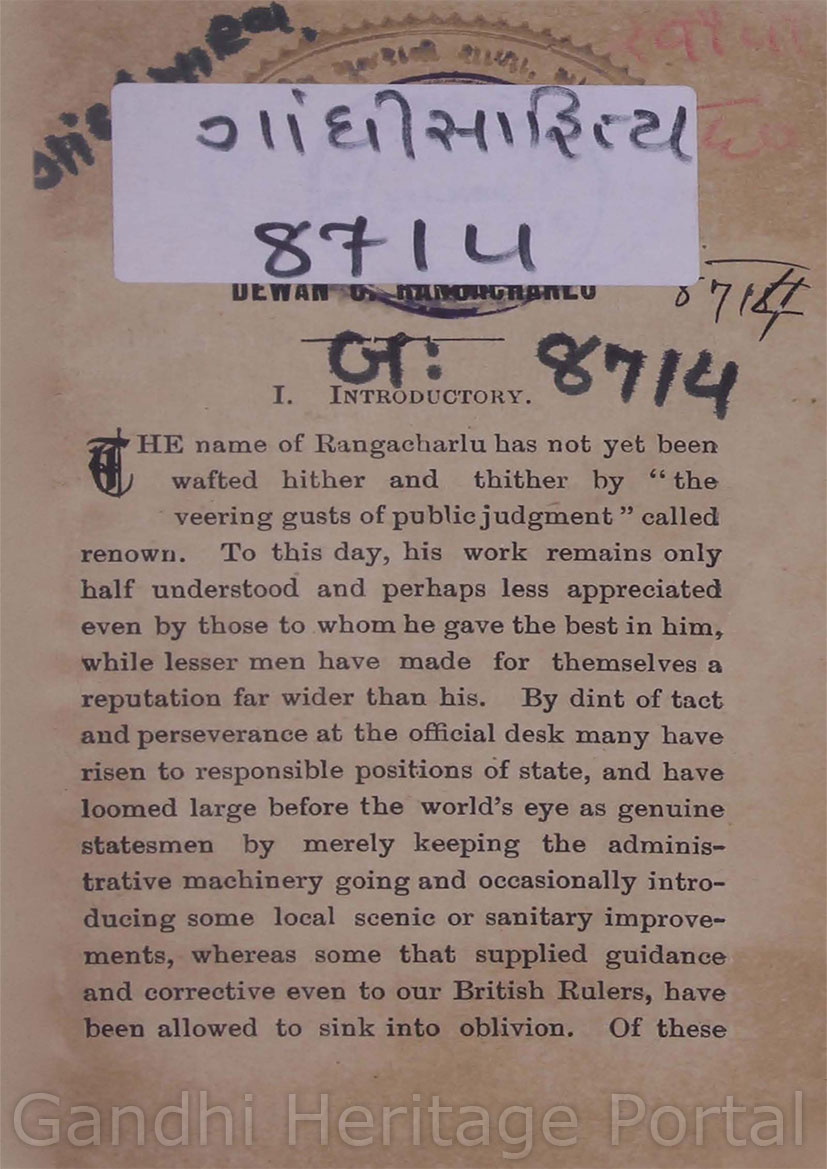 ગાંધીસાહિત્ય
૪૭1૫
DEWAN C. RANGACHARLU
બઃ ૪૭1૫
I. INTRODUCTORY.
THE name of Rangacharlu has not yet been
wafted hither and thither by “ the
veering gusts of public judgment ” called
renown. To this day, his work remains only
half understood and perhaps less appreciated
even by those to whom he gave the best in him,
while lesser men have made for themselves a
reputation far wider than his. By dint of tact
and perseverance at the official desk many have
risen to responsible positions of state, and have
loomed large before the world’s eye as genuine
statesmen by merely keeping the adminis-
trative machinery going and occasionally intro-
ducing some local scenic or sanitary improve-
ments, whereas some that supplied guidance
and corrective even to our British Rulers, have
been allowed to sink into oblivion. Of these
Gandhi Heritage Portal